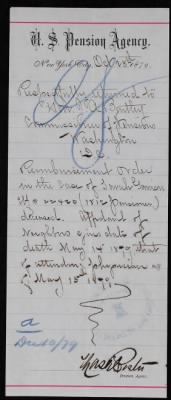 U. S. Pension Agency.
New York City, Oct 28th 1879.
Respectfully returned to
Commissioner of Pensions
Washington
D.C.
Reimbursement order
in the case of
No 22920 (1812 Pensioner)
deceased. Affidavit of
Neighbors gives date of
death May 14 1879 that
of attending physician as
of May 15 1879.
a
Dec 10/79
Pension Agent.